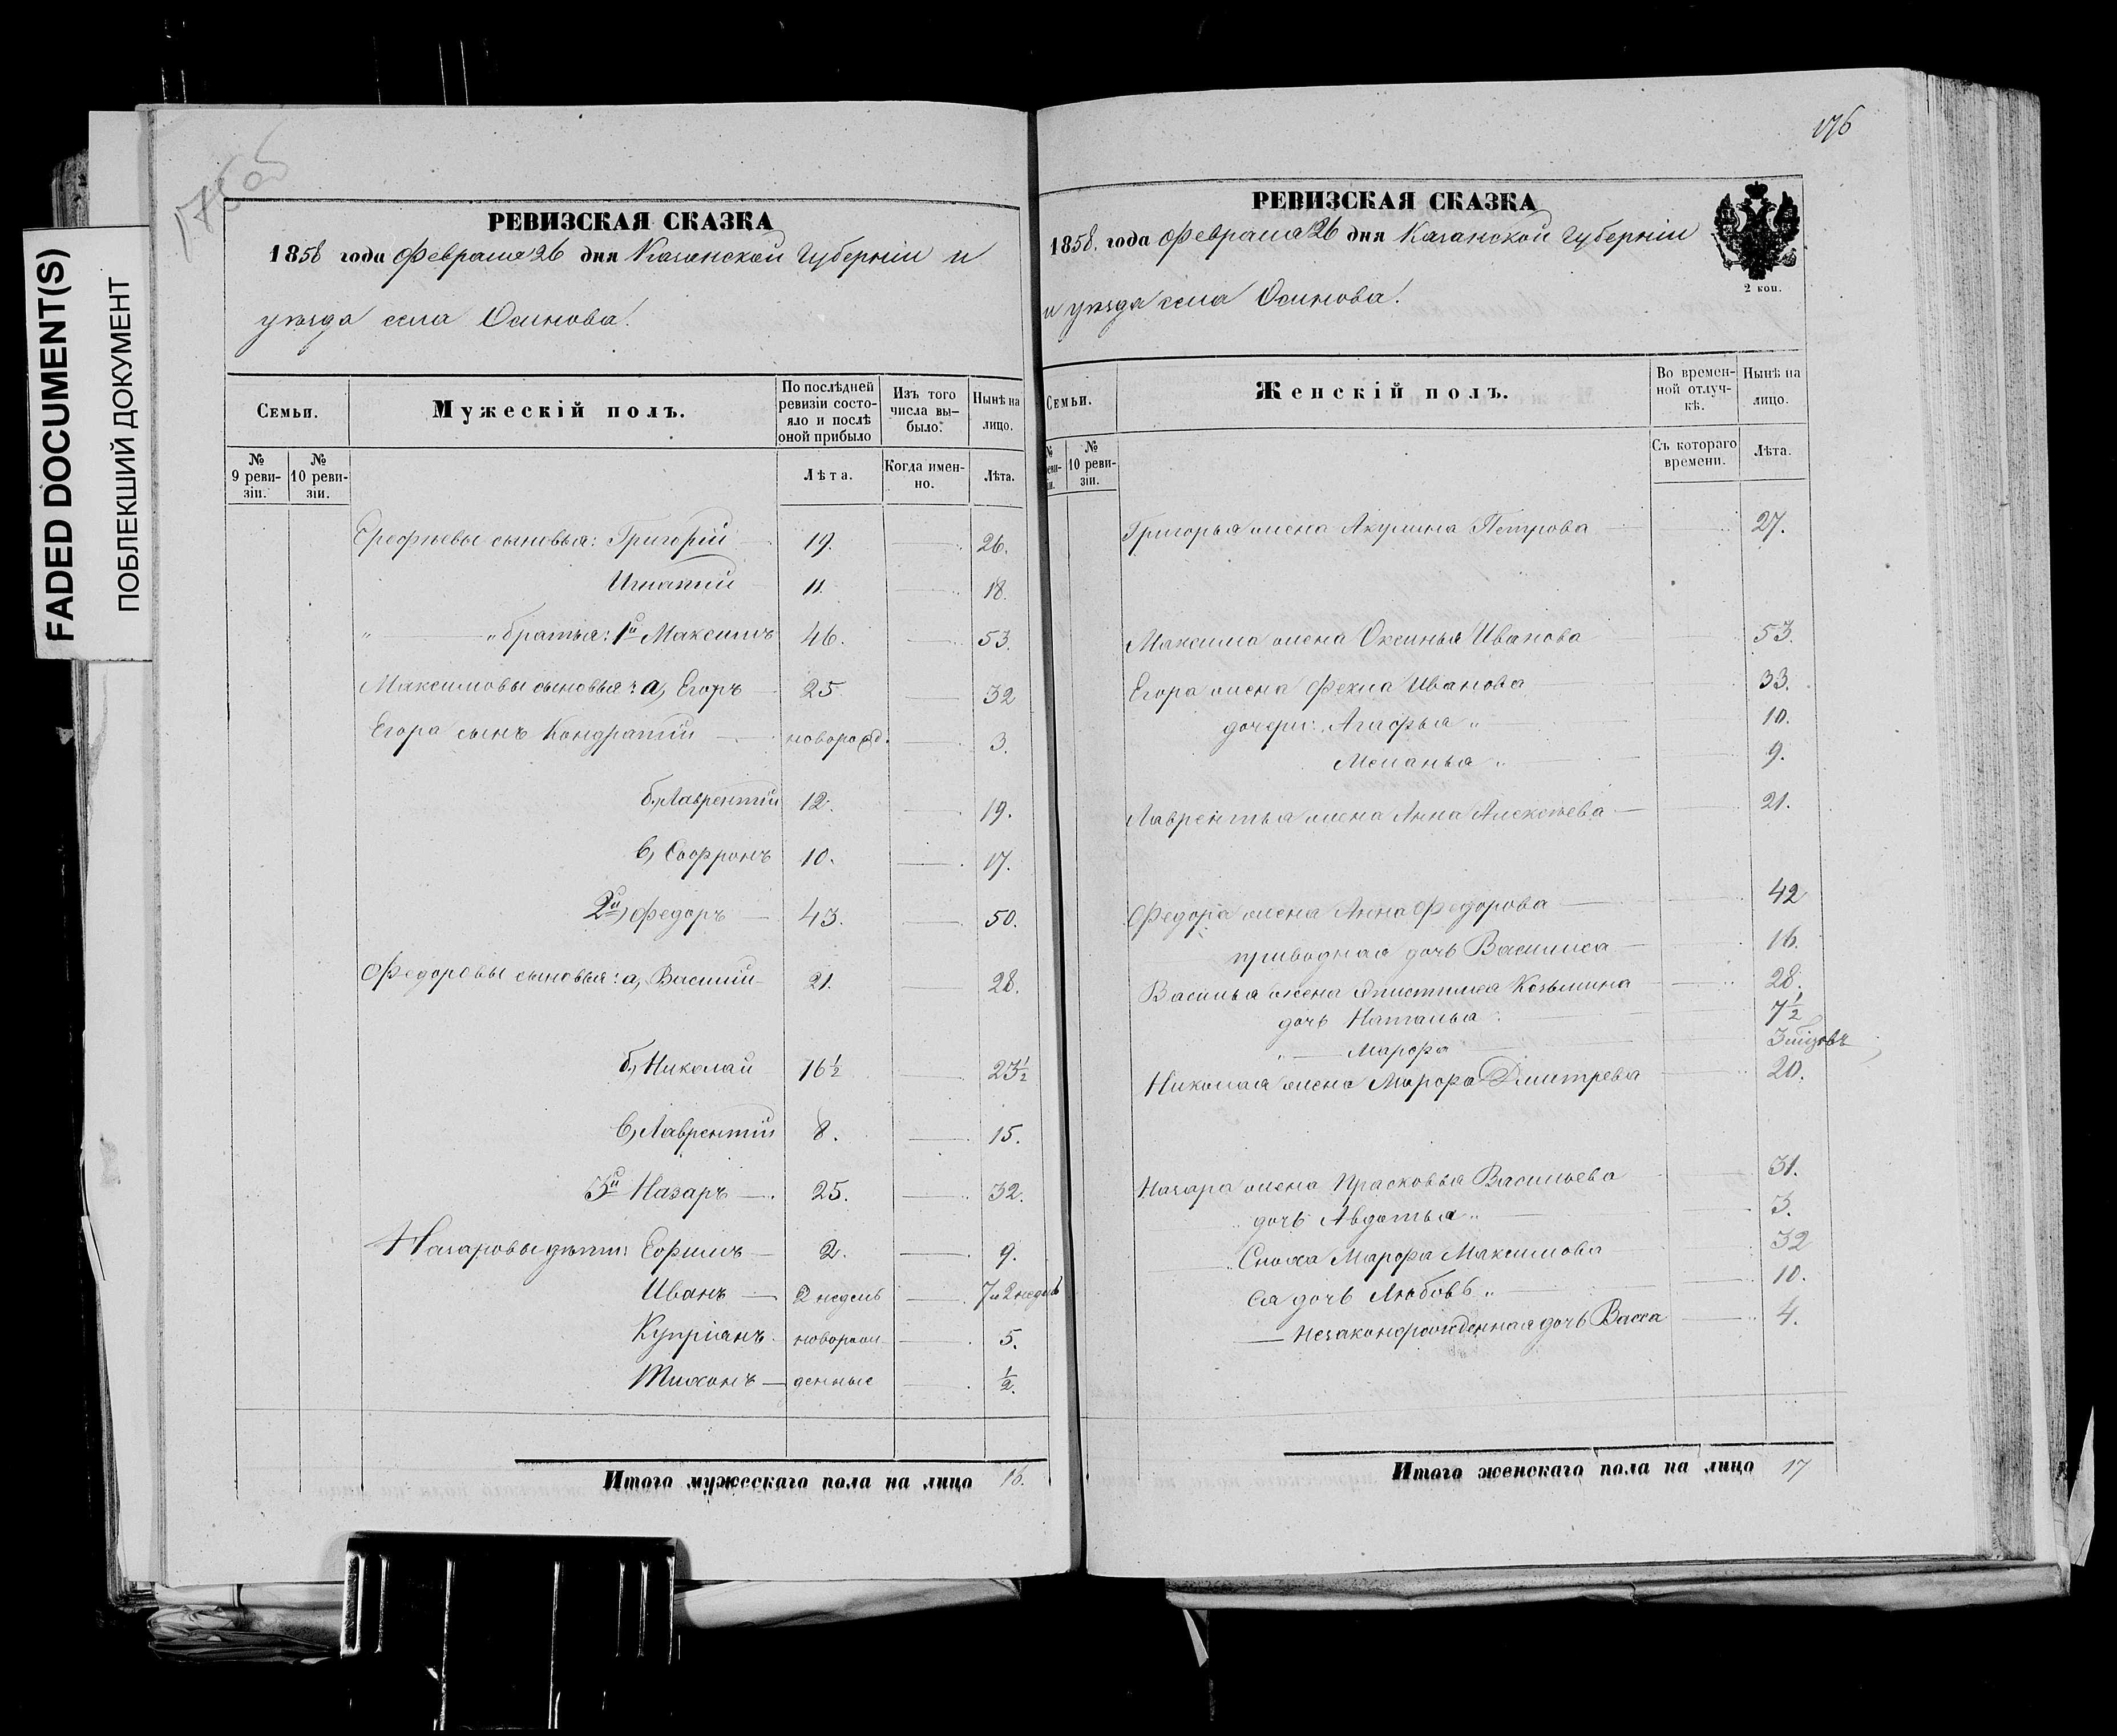 FADED DOCUMENT(S)
ПОБЛЕКШИЙ ДОКУМЕНТ
175 об
РЕВИЗСКАЯ СКАЗКА
1858 года Февраля 26 дня Казанской Губерніи и
уѣзда села Осинова.
Семьи.
Мужескій полъ.
По послѣдней ревизіи состояло и послѣ оной прибыло
Изъ того числа выбыло.
Нынѣ на лицо.
№ 9 ревизіи.
№ 10 ревизіи.
Лѣта.
Когда именно.
Лѣта.
Ерефѣевы сыновья: Григорій 19. 26.
Игнатій 11. 18.
" " братья: 1й Максимъ 46. 53.
Максимовы сыновья: а, Егоръ 25 32
Егора сынъ Кондратій новорожд. 3.
б, Лаврентій 12. 19.
в, Софронъ 10. 17.
2й, Федоръ 43. 50.
Федоровы сыновья: а, Василій 21. 28.
б, Николай 16½ 23½
в, Лаврентій 8. 15.
3й Назаръ 25. 32.
Назаровы дѣти: Ефимъ 2. 9.
Иванъ 2 недель 7 и 2 недель
Купріанъ новорож 5.
Тихонъ денные ½.
Итого мужескаго пола на лицо 16.
176
РЕВИЗСКАЯ СКАЗКА
1858. года Февраля 26 дня Казанской Губерніи
и уѣзда села Осинова.
2 коп.
Семьи.
Женскій полъ.
Во временной отлучкѣ.
Нынѣ на лицо.
№ 10 ревизіи.
Съ котораго времени.
Лѣта.
Григорья жена Акулина Петрова 27.
Максима жена Оксинья Иванова 53.
Егора жена Фекла Иванова 33.
дочери: Агафья " 10.
Меланья " 9.
Лаврентья жена Анна Алексѣева 21.
Федора жена Анна Федорова 42
приводная дочь Василиса 16.
Василья жена Апистимея Козьмина 28.
дочь Наталья 7½
" Марфа
Николая жена Марфа Дмитрева 20.
Назара жена Прасковья Васильева 31.
дочь Авдотья " 3.
Сноха Марфа Максимова 32
Ея дочь Любовь " 10.
незаконорожденная дочь Васса 4.
Итого женскаго пола на лицо 17